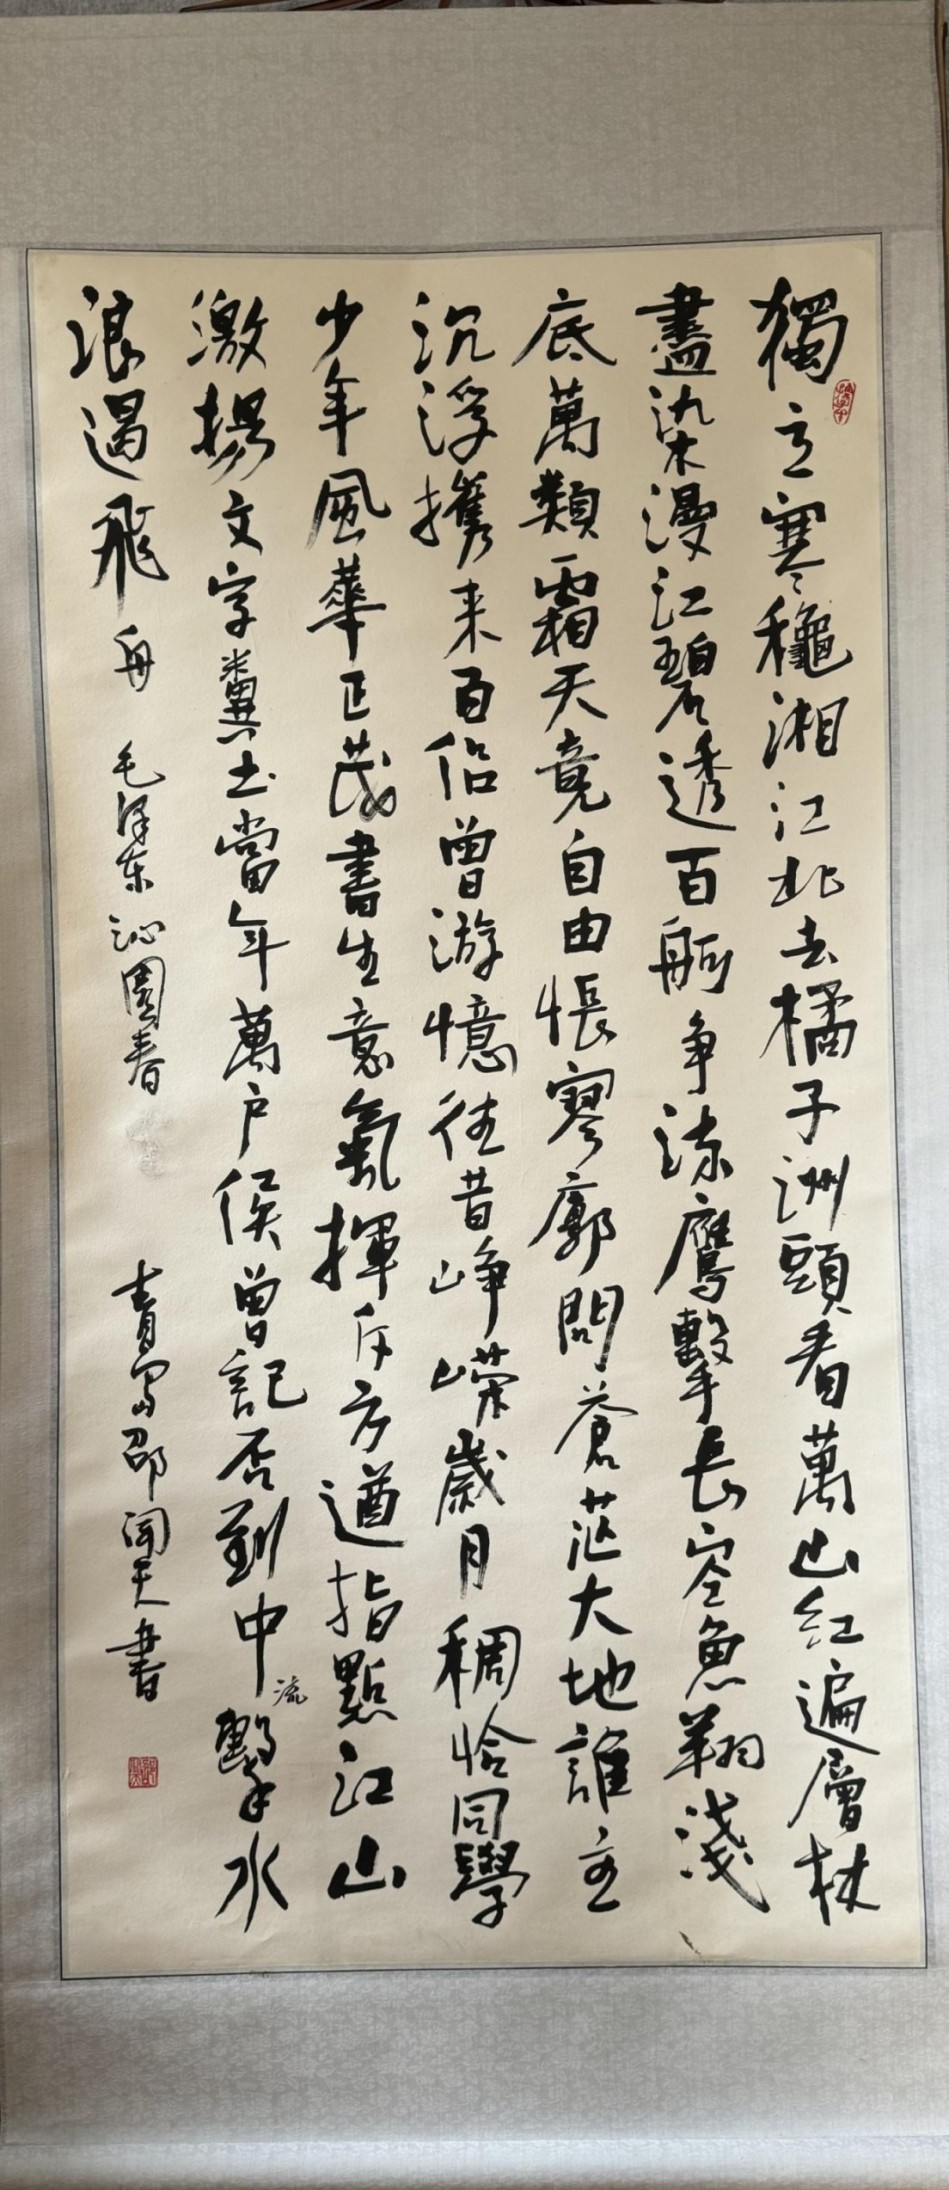 獨立寒龝湘江北去橘子洲頭看萬山紅遍層林
盡染漫江碧透百舸争流鷹擊長空魚翔淺
底萬類霜天竟自由悵寥廓問蒼茫大地誰主
沉浮攜来百侣曾游憶往昔峥嵘歲月稠恰同學
少年風華正茂書生意氣揮斥方遒指點江山
激揚文字糞土當年萬户侯曾記否到中流擊水
浪遏飛舟 毛泽东沁園春 青島邵闻天書